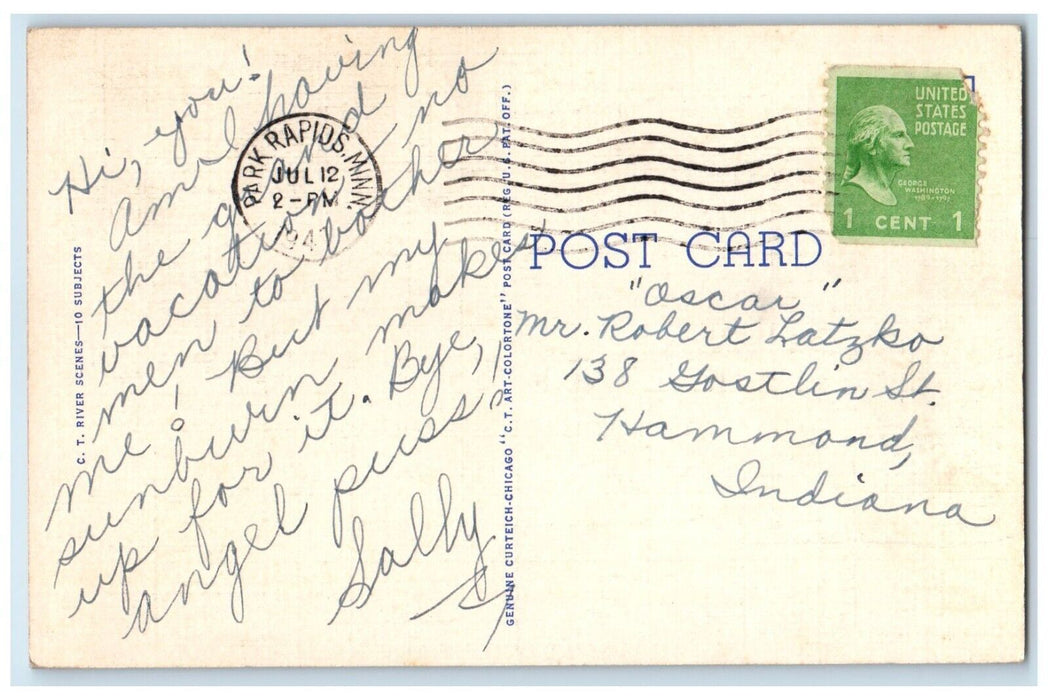 Hi, you!
Am I having
the grand
vacation - no
men to bother
me! But my
sunburn makes
up for it. Bye,
angel puss!
Sally
PARK RAPIDS, MINN.
JUL 12
2-PM
194
C. T. RIVER SCENES—10 SUBJECTS
GENUINE CURTEICH-CHICAGO "C.T. ART-COLORTONE" POST CARD (REG. U.S. PAT. OFF.)
UNITED
STATES
POSTAGE
GEORGE
WASHINGTON
1789-1797
1 CENT 1
POST CARD
"Oscar"
Mr. Robert Latzko
138 Gostlin St.
Hammond,
Indiana